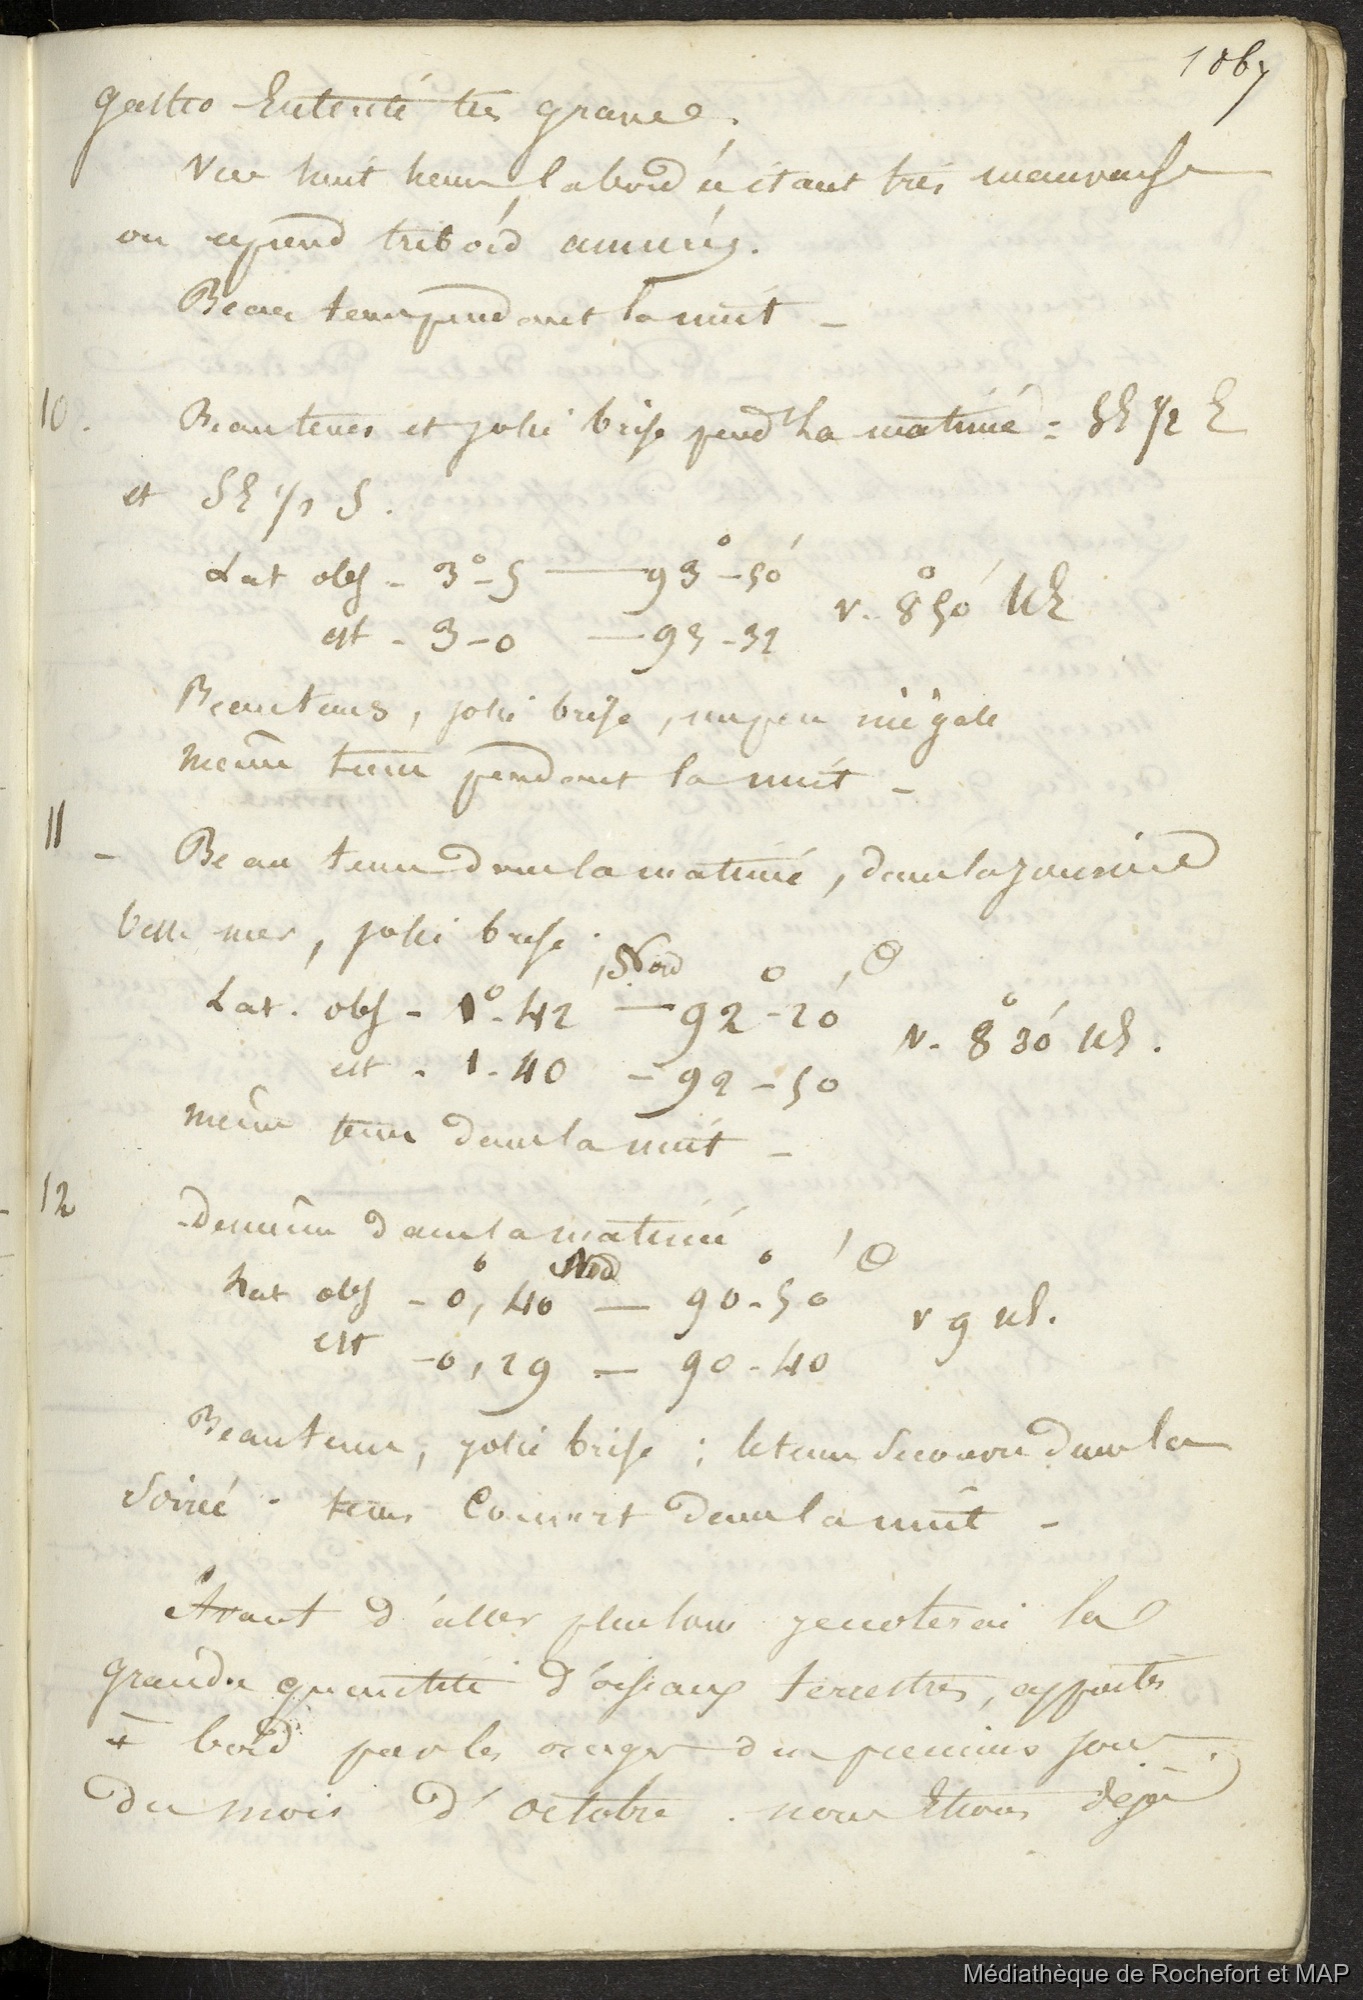 1067
gastro Entérité très grave.
Vers huit heures la bordée étant très mauvaise
on reprend tribord amures.
Beau temps pendant la nuit -
10. Beau tems et jolie brise pendt la matinée = SE 1/2 E
et SE 1/2 S.
Lat obs - 3° - 5 — 93° - 50'
v. 8° 50' NE
est - 3 - 0 — 93 - 32
Beau tems, jolie brise, un peu inégale
même tems pendant la nuit -
11 - Beau tems dans la matinée, dans la journée
belle mer, jolie brise.
Nord
Lat. obs - 1° - 42' — 92° - 20'
v. 8° 30' NE.
est - 1 - 40 — 92 - 50
même tems dans la nuit -
12 De même dans la matinée.
Nord
Lat obs - 0°, 40 — 90° - 50'
v 9 NE.
est - 0, 29 — 90 - 40
Beau tems, jolie brise ; le tems se couvre dans la
soirée - tems couvert dans la nuit -
Avant d'aller plus loin je noterai la
grande quantité d'oiseaux terrestres, apportés
à bord par les orages des premiers jours
du mois d'octobre. nous étions déjà
Médiathèque de Rochefort et MAP